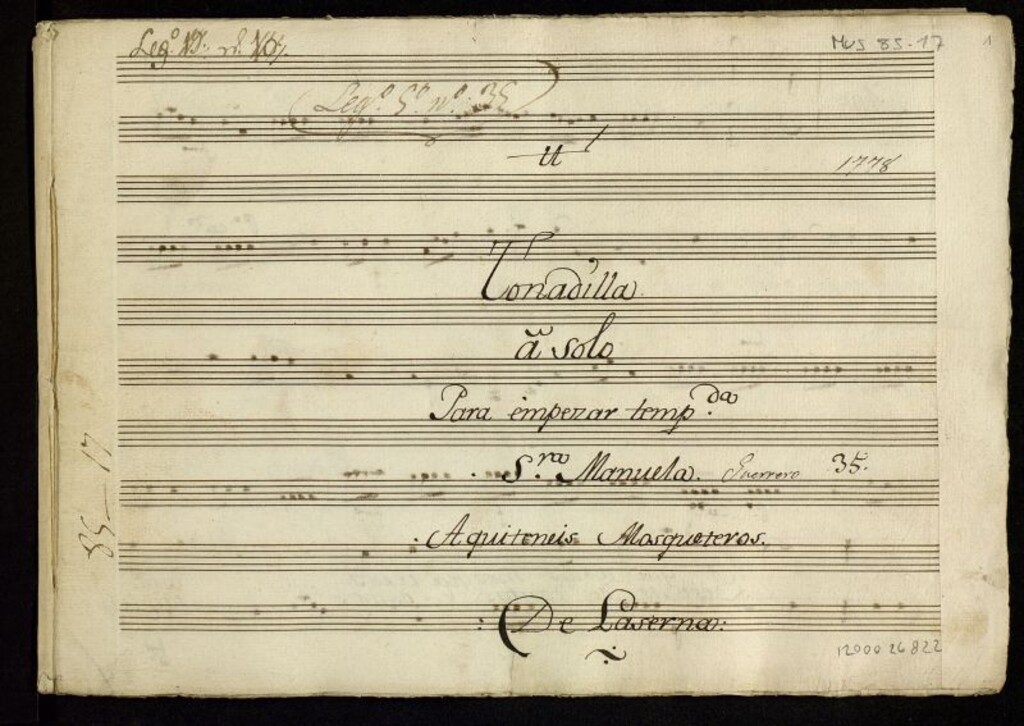 Leg.º
Mus 85-17
1
Legº. 5º. nº. 35
1778
Tonadilla
â solo
Para empezar temp.da
S.ra Manuela. Guerrero 35.
Aquiteneis Mosqueteros.
De Laserna:
85-17
12000 26822